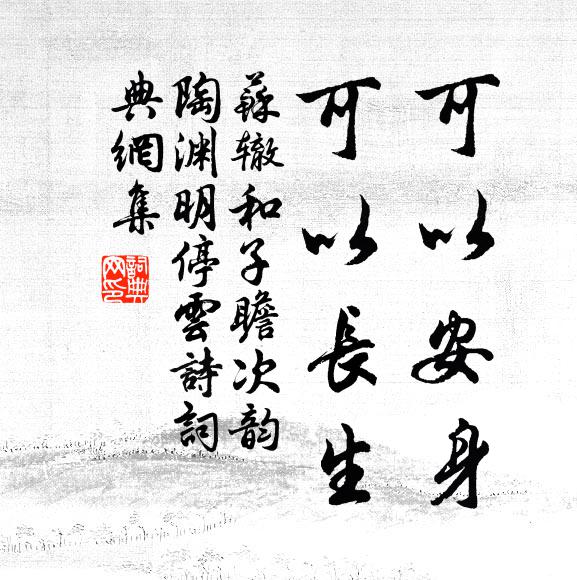 可以安身
可以長生
蘇辙和子瞻次韵
陶渊明停雲詩詞
典網集
詞典网印